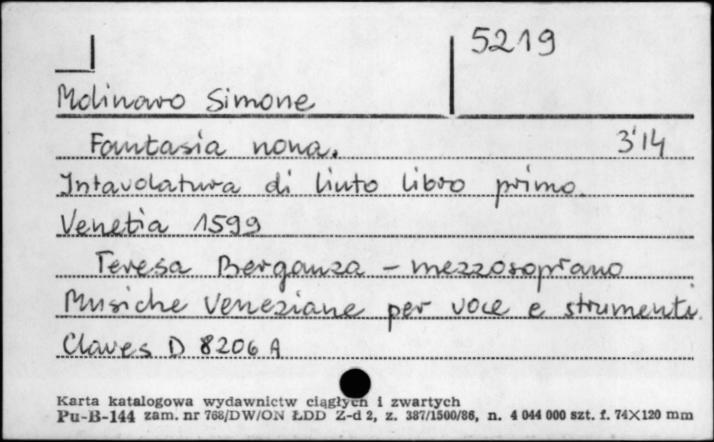 5219
Molinaro Simone
Fantasia nona. 3'14
Intavolatura di liuto libro primo.
Venetia 1599
Teresa Berganza - mezzosoprano
Musiche Veneziane per voce e strumenti.
Claves D 8206 A
Karta katalogowa wydawnictw ciągłych i zwartych
Pu-B-144 zam. nr 768/DW/ON ŁDD Z-d 2, z. 387/1500/86, n. 4 044 000 szt. f. 74X120 mm